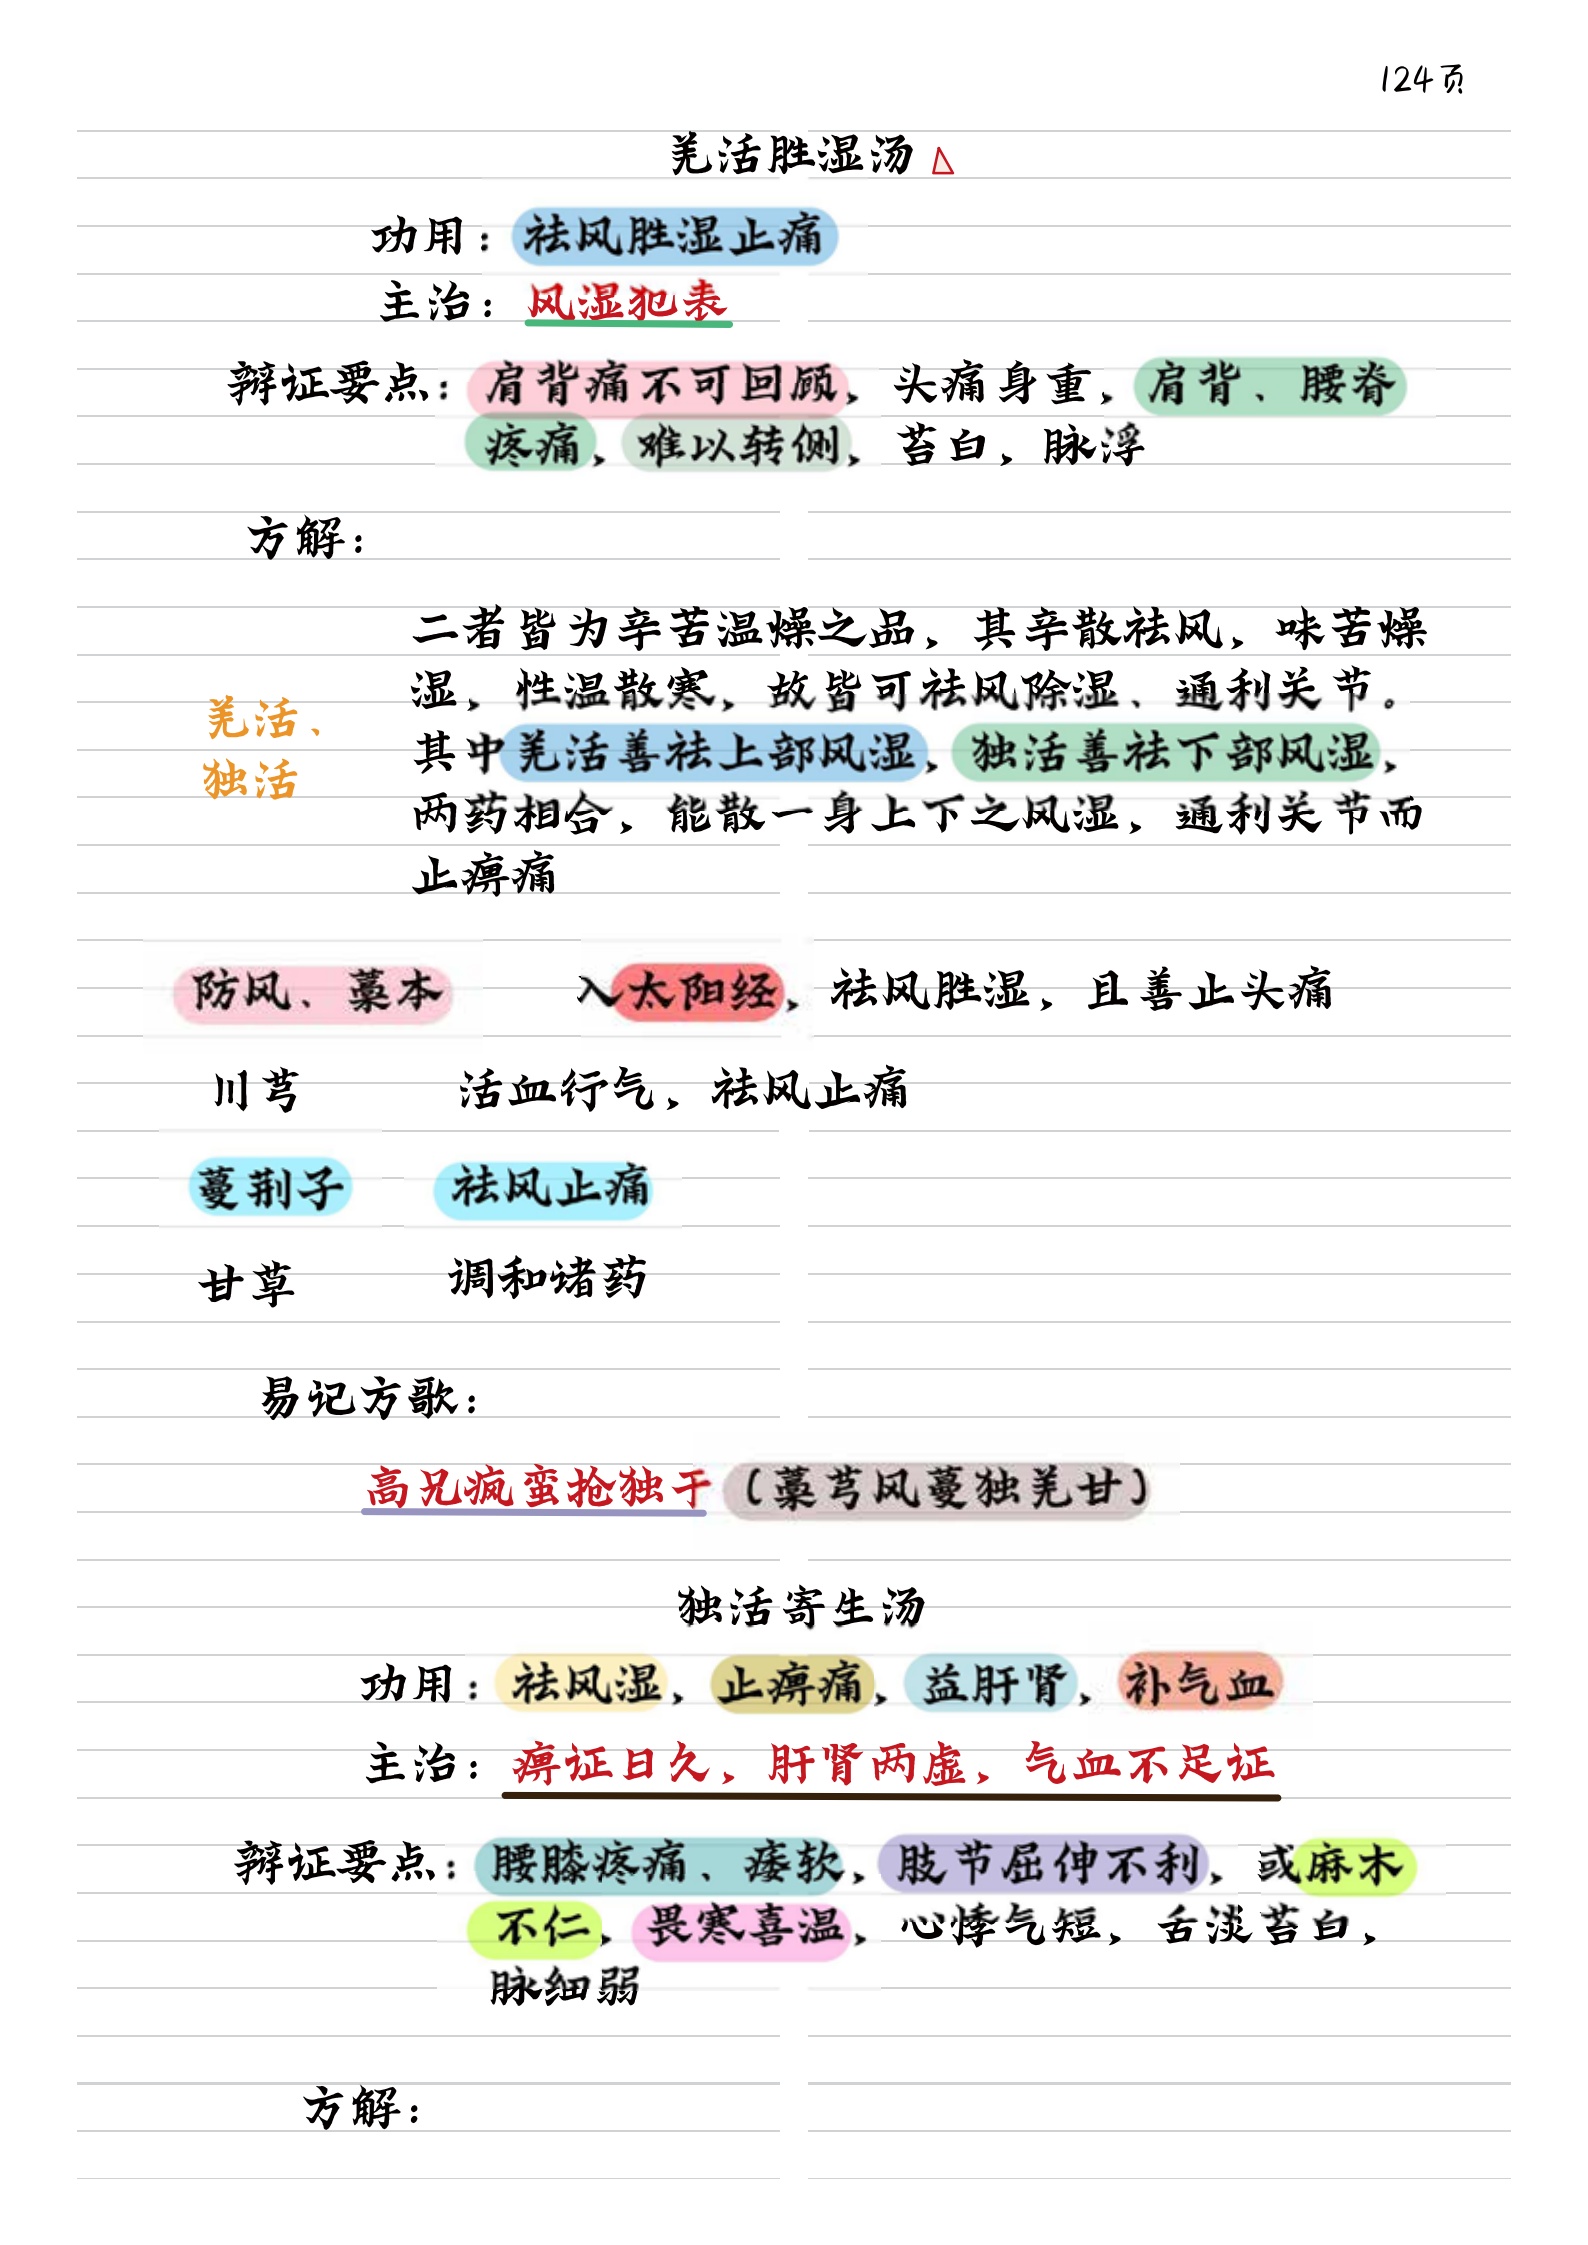 124页
羌活胜湿汤
功用：祛风胜湿止痛
主治：风湿犯表
辩证要点：肩背痛不可回顾，头痛身重，肩背、腰脊
疼痛，难以转侧，苔白，脉浮
方解：
二者皆为辛苦温燥之品，其辛散祛风，味苦燥
湿，性温散寒，故皆可祛风除湿、通利关节。
羌活、
独活
其中羌活善祛上部风湿，独活善祛下部风湿，
两药相合，能散一身上下之风湿，通利关节而
止痹痛
防风、藁本 入太阳经，祛风胜湿，且善止头痛
川芎 活血行气，祛风止痛
蔓荆子 祛风止痛
甘草 调和诸药
易记方歌：
高兄疯蛮抢独干（藁芎风蔓独羌甘）
独活寄生汤
功用：祛风湿，止痹痛，益肝肾，补气血
主治：痹证日久，肝肾两虚，气血不足证
辩证要点：腰膝疼痛、痿软，肢节屈伸不利，或麻木
不仁，畏寒喜温，心悸气短，舌淡苔白，
脉细弱
方解：